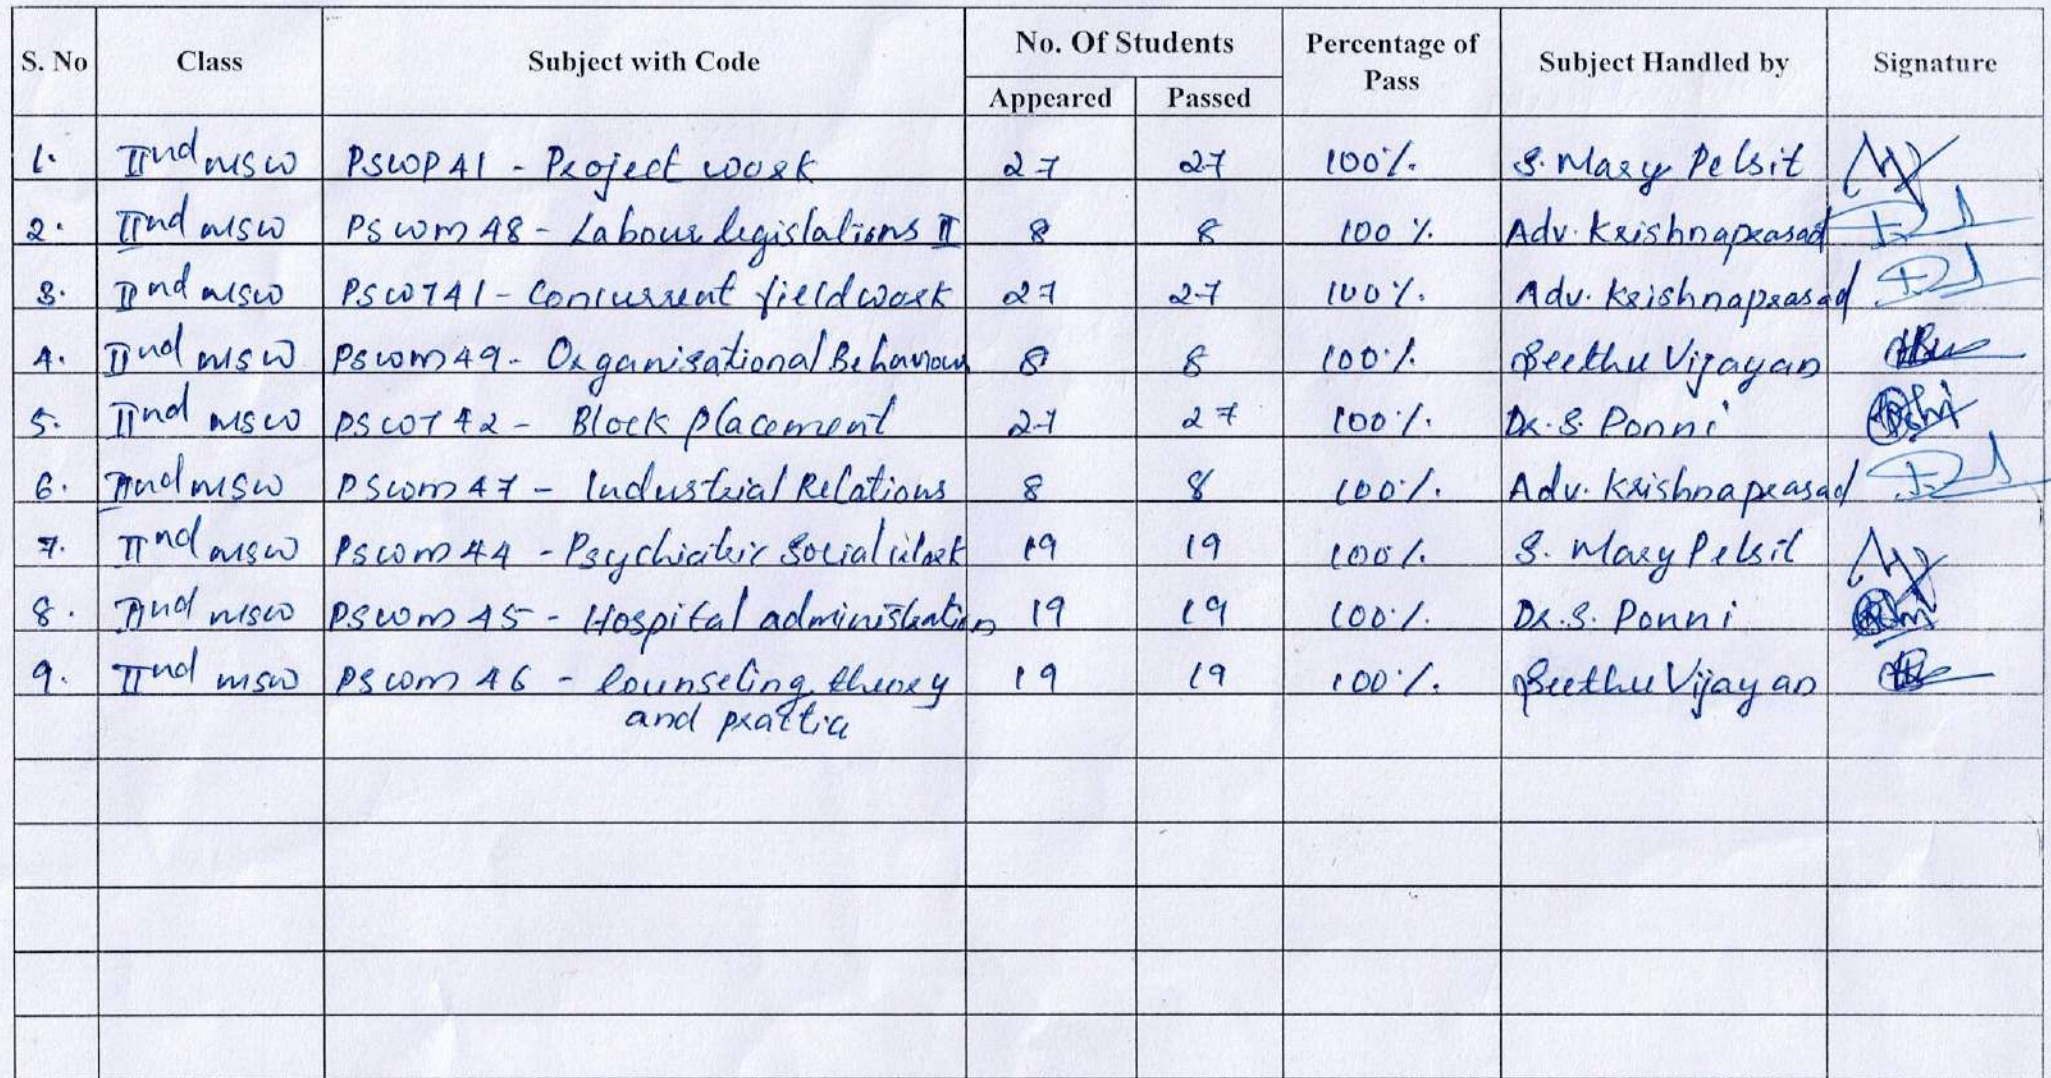 S. No Class Subject with Code No. Of Students Percentage of Pass Subject Handled by Signature
Appeared Passed
1. IInd MSW PSWP41 - Project work 27 27 100% S. Mary Pelsit
2. IInd MSW PSWM48 - Labour legislations II 8 8 100% Adv. Krishnaprasad
3. IInd MSW PSWT41 - Concurrent fieldwork 27 27 100% Adv. Krishnaprasad
4. IInd MSW PSWM49 - Organisational Behaviour 8 8 100% Seethu Vijayan
5. IInd MSW PSWT42 - Block placement 27 27 100% Dr. S. Ponni
6. IInd MSW PSWM47 - Industrial Relations 8 8 100% Adv. Krishnaprasad
7. IInd MSW PSWM44 - Psychiatric Social Work 19 19 100% S. Mary Pelsit
8. IInd MSW PSWM45 - Hospital administration 19 19 100% Dr. S. Ponni
9. IInd MSW PSWM46 - Counseling theory 19 19 100% Seethu Vijayan
and practic